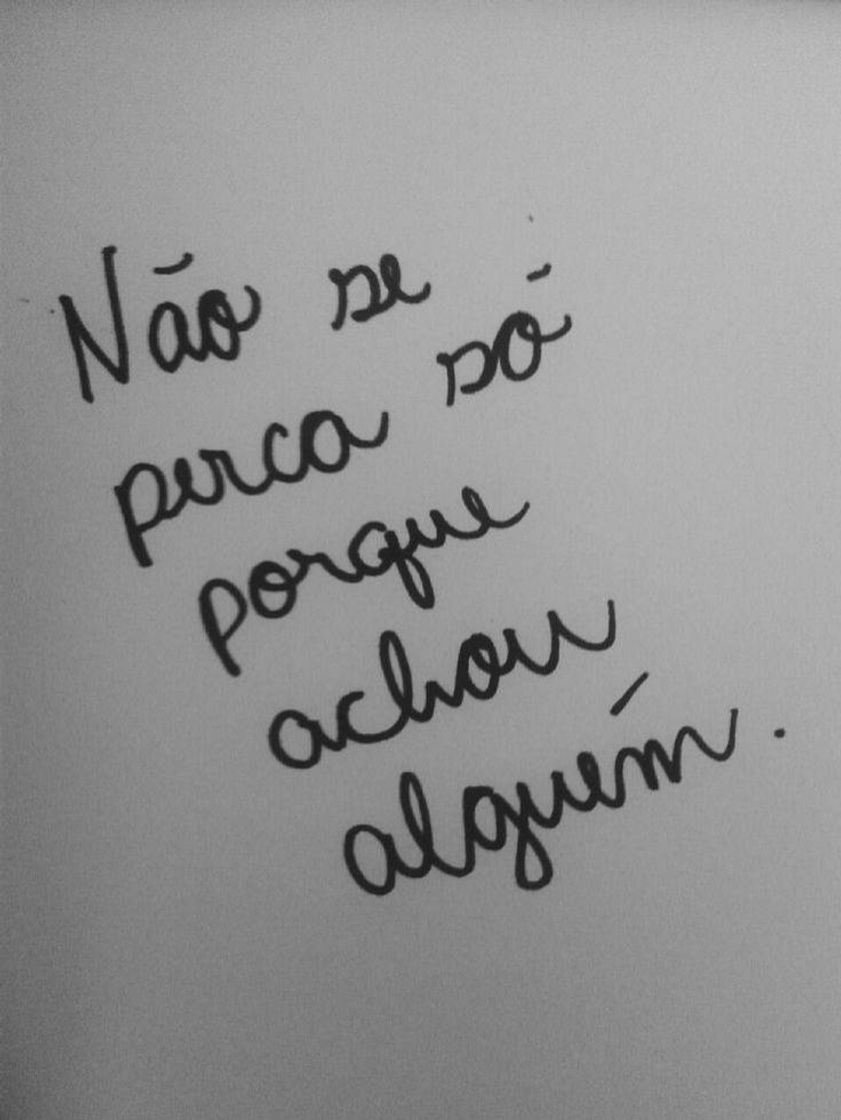 Não se
perca só
porque
achou
alguém.